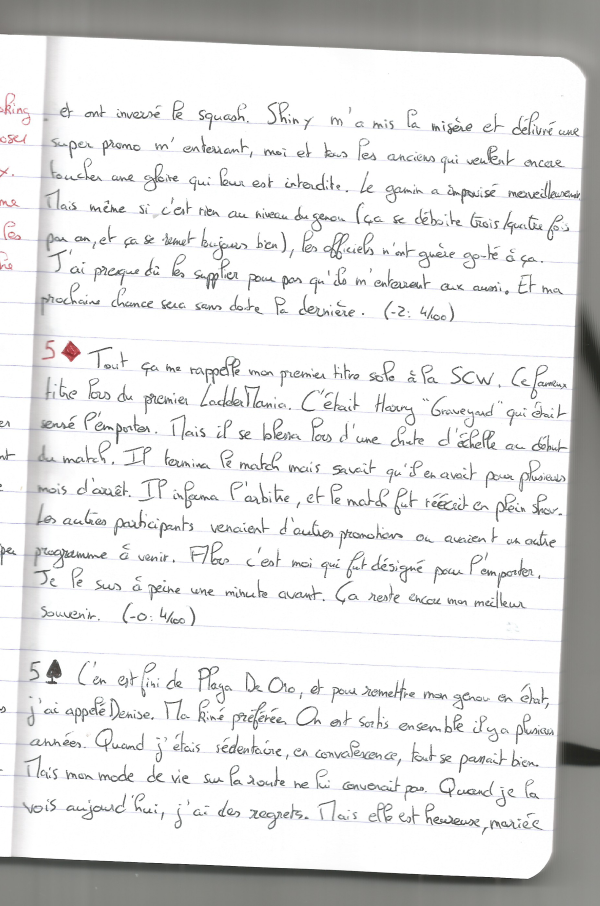 et ont inversé le squash. Shiny m'a mis la misère et délivré une
super promo m'enterrant, moi et tous les anciens qui veulent encore
toucher une gloire qui leur est interdite. Le gamin a improvisé merveilleusement
Mais même si c'est rien au niveau du genou (ça se déboite trois/quatre fois
par an, et ça se remet toujours bien), les officiels n'ont guère goûté à ça.
J'ai presque dû les supplier pour pas qu'ils m'enterrent eux aussi. Et ma
prochaine chance sera sans doute la dernière. (-2: 4/100)
5♦ Tout ça me rappelle mon premier titre solo à la SCW. Ce fameux
titre lors du premier LadderMania. C'était Harry "Graveyard" qui était
sensé l'emporter. Mais il se blessa lors d'une chute d'échelle au début
du match. Il termina le match mais savait qu'il en avait pour plusieurs
mois d'arrêt. Il informa l'arbitre, et le match fut réécrit en plein show.
Les autres participants venaient d'autres promotions ou avaient un autre
programme à venir. Alors c'est moi qui fut désigné pour l'emporter.
Je le sus à peine une minute avant. Ça reste encore mon meilleur
souvenir. (-0: 4/100)
5♠ C'en est fini de Playa De Oro, et pour remettre mon genou en état,
j'ai appelé Denise. Ma kiné préférée. On est sortis ensemble il y a plusieurs
années. Quand j'étais sédentaire, en convalescence, tout se passait bien.
Mais mon mode de vie sur la route ne lui convenait pas. Quand je la
vois aujourd'hui, j'ai des regrets. Mais elle est heureuse, mariée